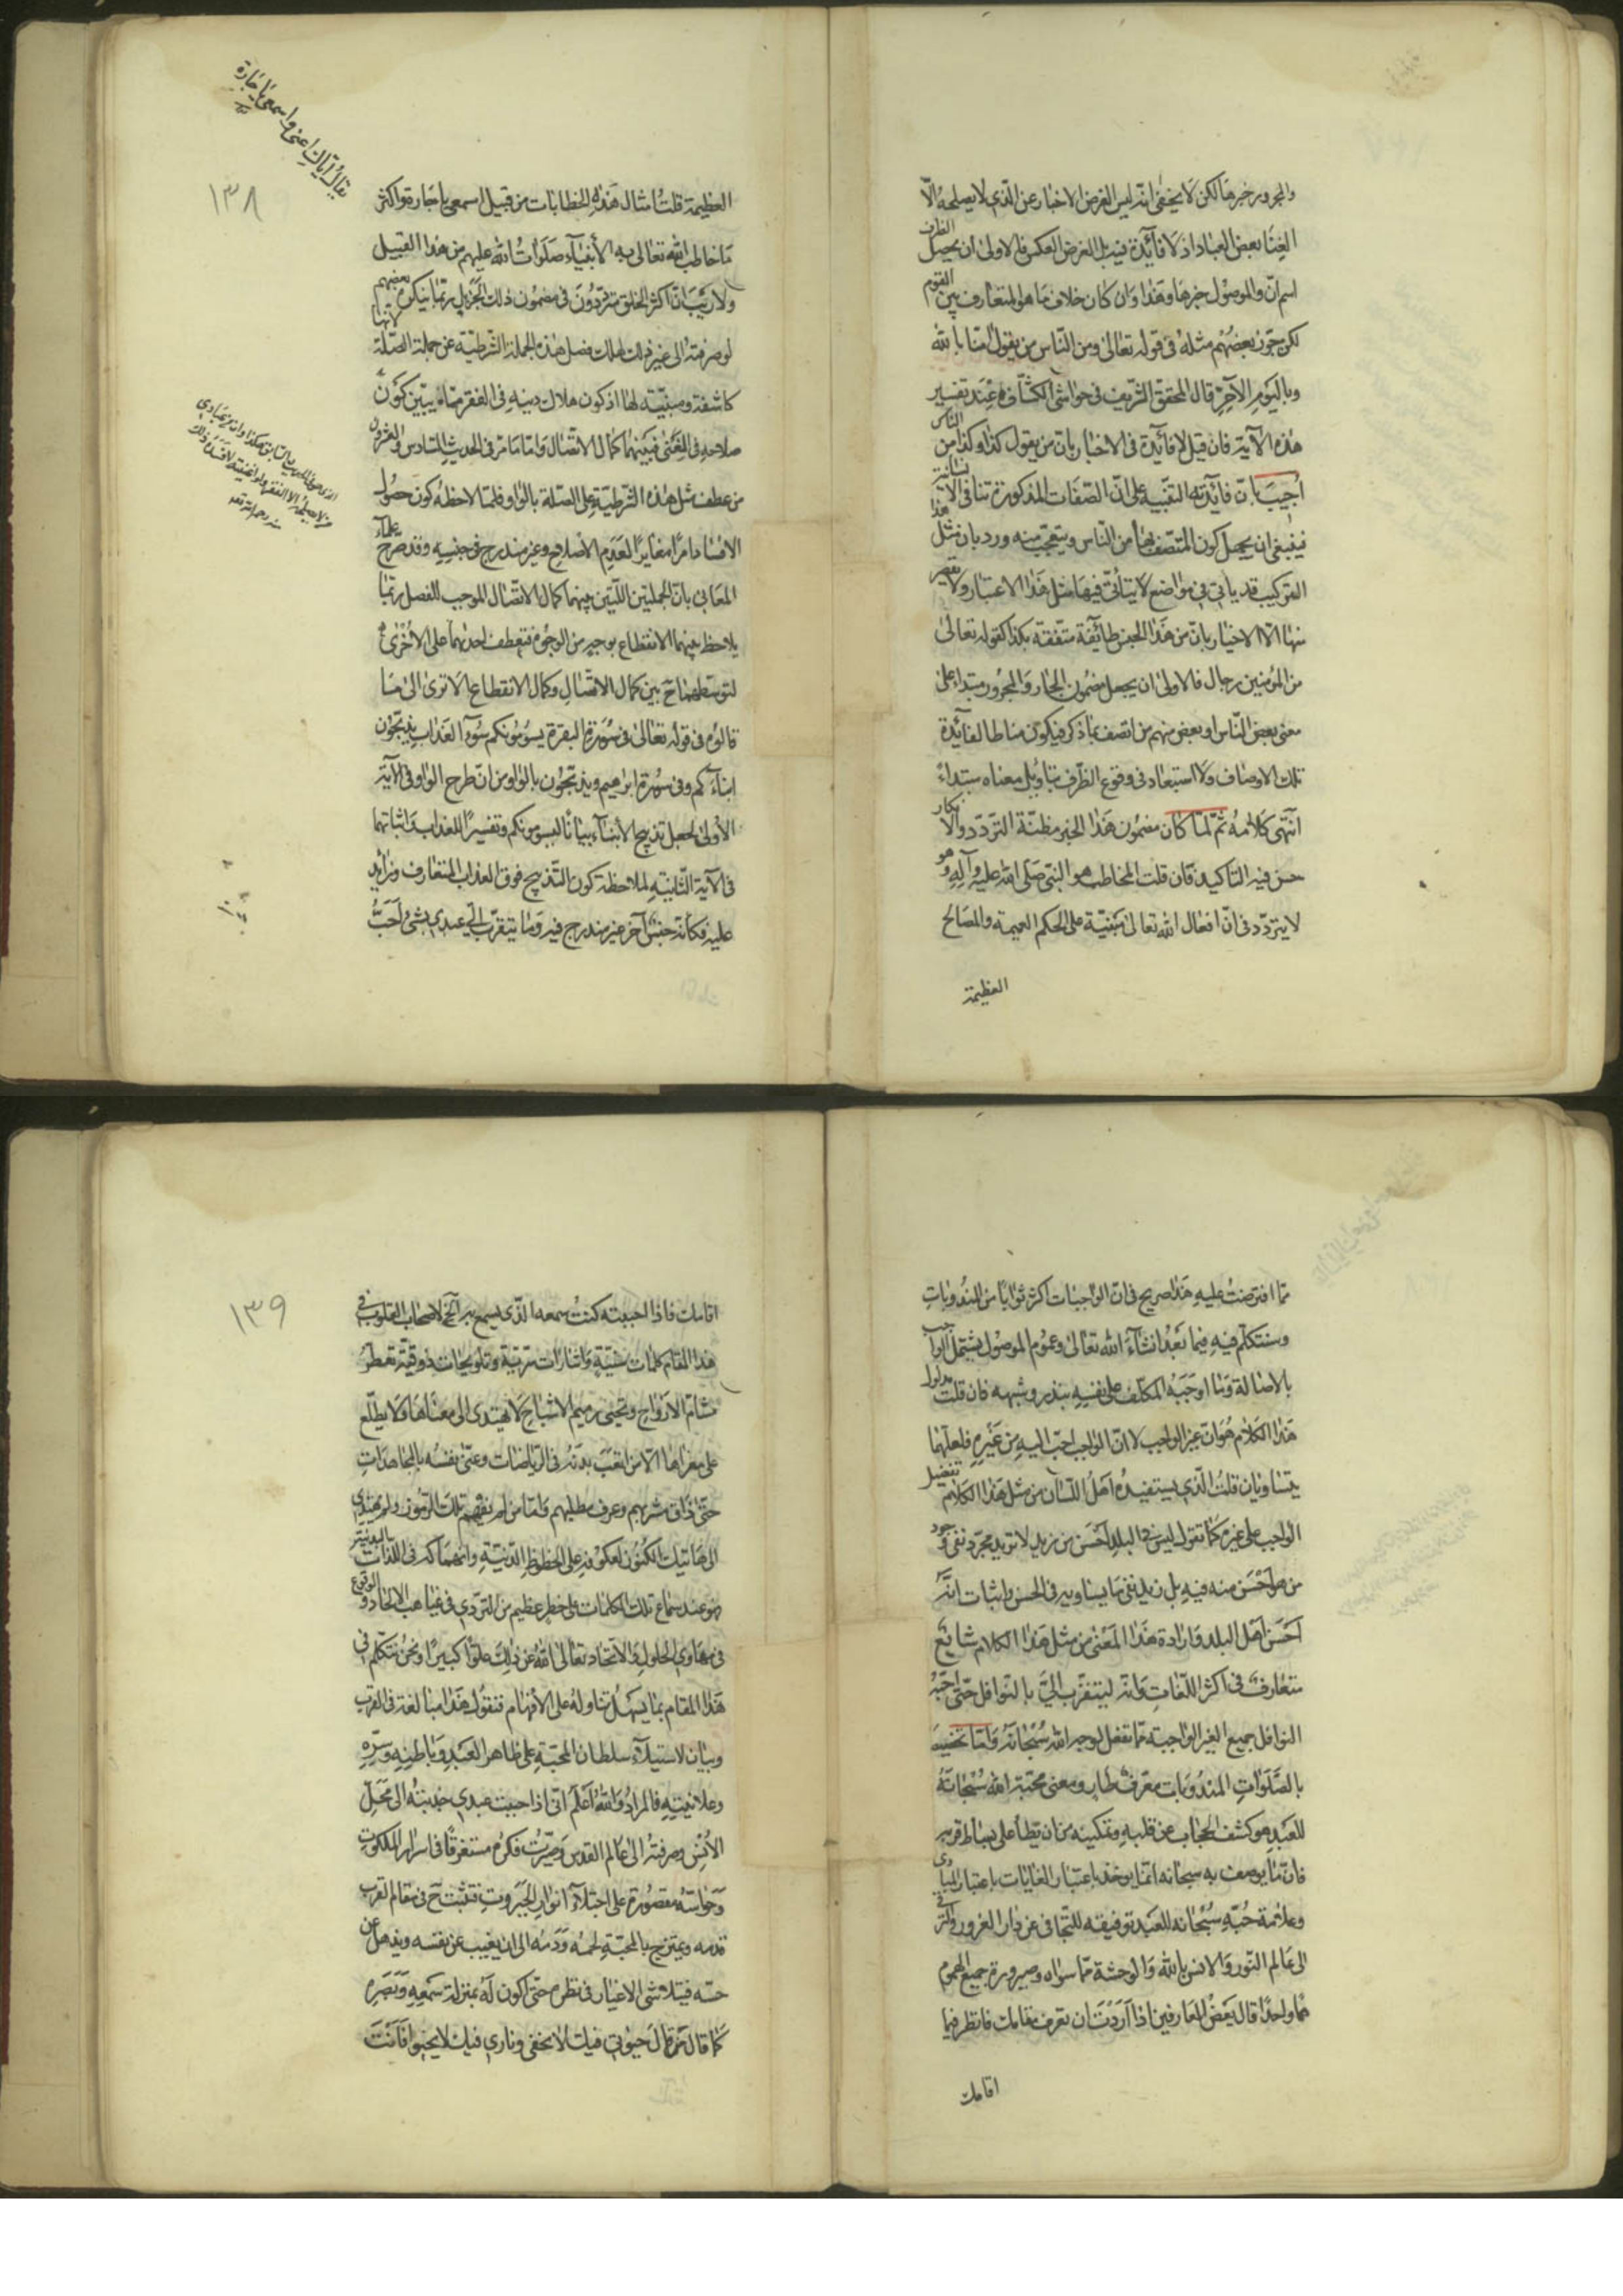 والمجرور خبرها لكن لا يخفى انه ليس الغرض الاخبار عن الذي لا يصلحه الّا
الغنا بعض العباد اذ لا فآئدة فيه بل الغرض العكس فالاولى ان يجعل الظرف
اسم انّ والموصول خبرها وهذا وان كان خلاف ما هو المتعارف بين القوم
لكن جوّز بعضهم مثله فى قوله تعالى ومن النّاس من يقول امنّا بالله
وباليوم الآخر قال المحقق الشّريف فى حواشى الكشّاف عند تفسير
هذه الآية فان قيل لا فآئدة فى الاخبار بانّ من يقول كذا وكذا من الناس
اجيب بانّ فائدته التنبيه على انّ الصّفات المذكورة تنافى الانسانية
فينبغى ان يجهل كون المتّصف بها من النّاس ويتعجّب منه وردّ بان مثل هذا
التركيب قد ياتى فى مواضع لا يتأتّى فيها مثل هذا الاعتبار ولا يقصد
منها الّا الاخبار بانّ من هذا الجنس طآئفة متّصفة بكذا كقوله تعالى
من المؤمنين رجال فالاولى ان يجعل مضمون الجار والمجرور مبتداء على
معنى بعض النّاس او بعض منهم من اتصف بما ذكر فيكون مناطا لفائدة
تلك الاوصاف ولا استبعاد فى وقوع الظّرف بتاويل معناه مبتداء
انتهى كلامه ثمّ لمّا كان مضمون هذا الخبر مظنّة التردّد والانكار
حسن فيه التاكيد فان قلت المخاطب هو النبى صلى الله عليه وآله وهو
لا يتردّد فى انّ افعال الله تعالى مبنيّة على الحكم العميمة والمصالح
العظيمة
يقال اياك اعنى واسمعى يا جارة
١٣٨
العظيمة قلت امثال هذه الخطابات من قبيل اسمعى يا جارة واكثر
ما خاطب الله تعالى به الأنبيآء صلوات الله عليهم من هذا القبيل
ولا ريب انّ اكثر الخلق متردّدون فى مضمون ذلك الخبر بل ربّما ينكره بعضهم
لو صرفته الى غير ذلك لهلك فصل هذه الجملة الشّرطيّة عن جملة الصّلة لانها
كاشفة ومبيّنة لها اذ كون هلاك دينه فى الفقر ممّا يبيّن كون
صلاحه فى الغنى فبينهما كمال الاتّصال وامّا ما مرّ فى الحديث السّادس والعشرون
من عطف مثل هذه الشرطيّة على الصّلة بالواو فلملاحظة كون حصول
الافساد امرا مغايرا لعدم الاصلاح وغير مندرج فى جنسه وقد صرّح علمآء
المعانى بانّ الجملتين اللّتين بينهما كمال الاتّصال الموجب للفصل ربّما
يلاحظ بينهما الانقطاع بوجه من الوجوه فتعطف احديهما على الاخرى
لتوسّطها ح بين كمال الاتّصال وكمال الانقطاع الا ترى الى ما
قالوه فى قوله تعالى فى سورة البقرة يسومونكم سوء العذاب يذبّحون
ابنآءكم وفى سورة ابرهيم ويذبّحون بالواو من انّ طرح الواو فى الآية
الاولى لجعل تذبيح الأبنآء بيانا ليسومونكم وتفسيرا للعذاب واثباتها
فى الآية الثّانية لملاحظة كون التّذبيح فوق العذاب المتعارف وزائد
عليه فكانّه جنس آخر غير مندرج فيه وما يتقرّب الىّ عبدى بشئ احبّ
مما افترضت عليه هذا صريح فى انّ الواجبات اكثر ثوابا من المندوبات
وسنتكلّم فيه فيما بعد انشآء الله تعالى وعموم الموصول يشتمل الواجب
بالاصالة وما اوجبه المكلّف على نفسه بنذر وشبهه فان قلت مدلول
هذا الكلام هو انّ غير الواجب لا انّ الواجب احبّ اليه من غيره فلعلّهما
يتساويان قلت الّذى يستفيده اهل اللّسان من مثل هذا الكلام تفضيل
الواجب على غيره كما تقول ليس فى البلد احسن من زيد لا تريد مجرّد نفى وجود
من هو احسن منه فيه بل تريد نفى ما يساويه فى الحسن واثبات انّه
احسن اهل البلد وارادة هذا المعنى من مثل هذا الكلام شايع
متعارف فى اكثر اللّغات وانّه ليتقرّب الىّ بالنوافل حتّى احبّه
النوافل جميع الغير الواجبة ممّا تفعل لوجه الله سبحانه وامّا تخصيصها
بالصّلوات المندوبات فعرف طار ومعنى محبّة الله سبحانه
للعبد هو كشف الحجاب عن قلبه وتمكينه من ان يطأ على بساط قربه
فانّ ما يوصف به سبحانه انّما يوخذ باعتبار الغايات لا باعتبار المبادى
وعلامة حبّه سبحانه للعبد توفيقه للتّجافى عن دار الغرور والترقى
الى عالم النّور والانس بالله والوحشة ممّا سواه وصيرورة جميع الهموم
همّا واحدا قال بعض العارفين اذا اردت ان تعرف مقامك فانظر فيما
اقامك
١٣٩
اقامك فاذا احببته كنت سمعه الّذى يسمع به آلخ لاصحاب القلوب فى
هذا المقام كلمات سنيّة واشارات سرّيّة وتلويحات ذوقيّة تعطّر
مشامّ الارواح وتحيى رميم الاشباح لا يهتدى الى معناها ولا يطّلع
على مغزاها الّا من اتعب بدنه فى الرّياضات وعنّى نفسه بالمجاهدات
حتّى ذاق مشربهم وعرف مطلبهم وامّا من لم يفهم تلك الرّموز ولم يهتدى
الى هاتيك الكنوز لعكوفه على الحظوظ الدّنيّة وانهماكه فى اللّذات البدنية
فهو عند سماع تلك الكلمات على خطر عظيم من التردّى فى غياهب الالحاد والوقوع
فى مهاوى الحلول والاتّحاد تعالى الله عن ذلك علوّا كبيرا ونحن نتكلّم فى
هذا المقام بما يسهل تناوله على الأفهام فنقول هذا مبالغة فى القرب
وبيان لاستيلآء سلطان المحبّة على ظاهر العبد وباطنه وسرّه
وعلانيته فالمراد والله اعلم انّى اذا احببت عبدى جذبته الى محلّ
الأنس وصرفته الى عالم القدس وصيّرت فكره مستغرقا فى اسرار الملكوت
وحواسّه مقصورة على اجتلآء انوار الجبروت فتثبت ح فى مقام القرب
قدمه ويمتزج بالمحبّة لحمه ودمه الى ان يغيب عن نفسه ويذهل عن
حسّه فيتلاشى الاغيار فى نظره حتّى اكون له بمنزلة سمعه وبصره
كما قال من قال جنونى فيك لا يخفى ونارى فيك لا يخبو فانت